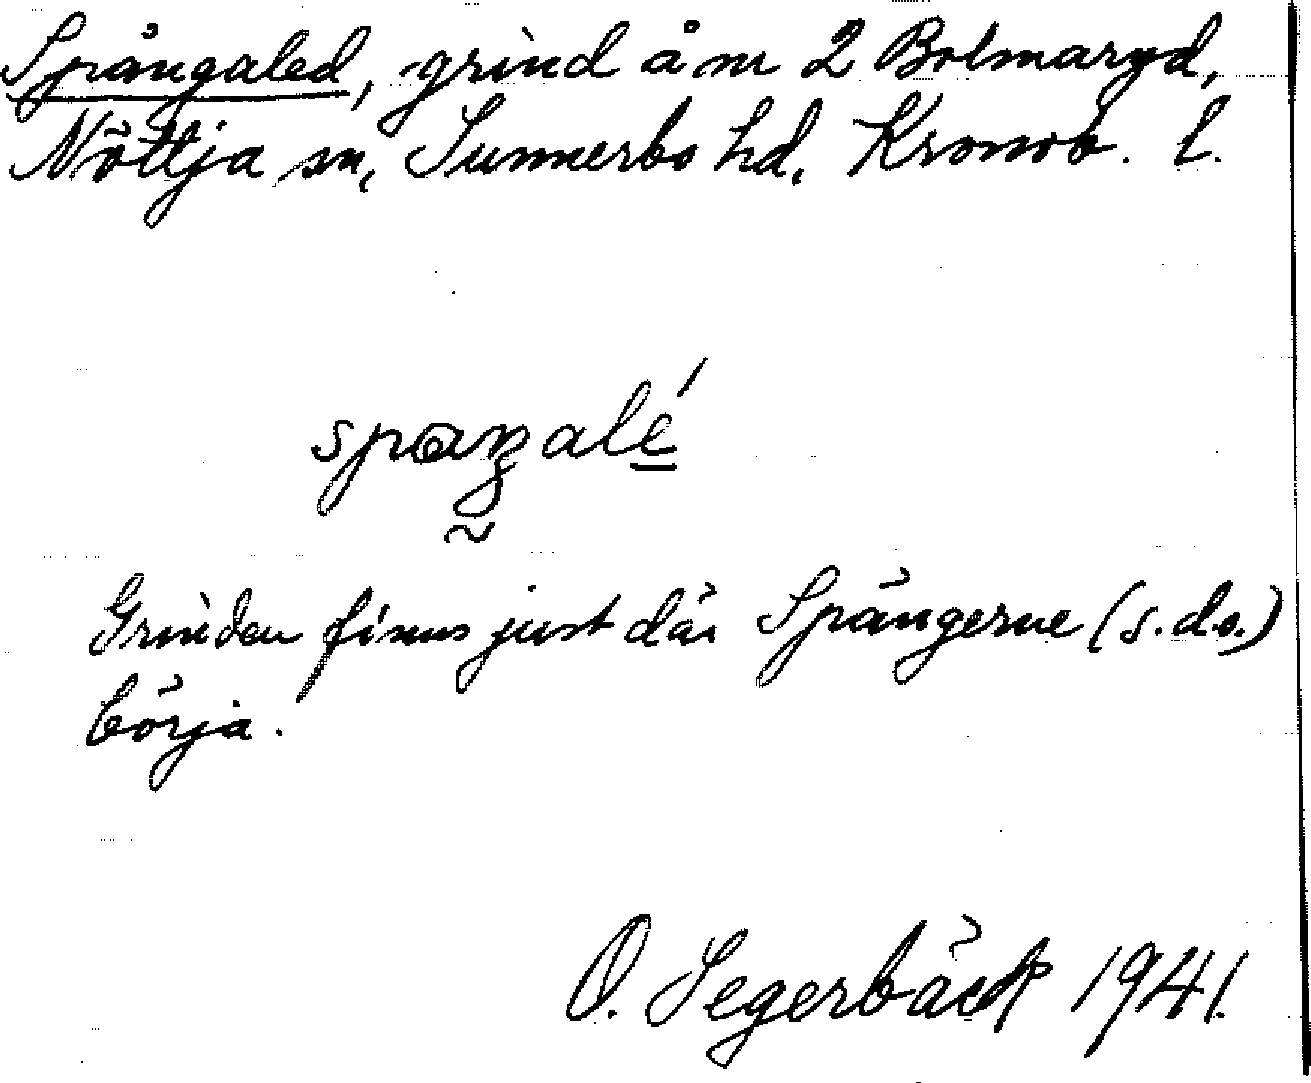 Spångaled, grind å nr 2 Bolmaryd,
Nöttja sn, Sunnerbo hd, Kronob. l.
spaŋalé
Grinden finns just där Spångerne (s.d.o.)
börja.
O. Segerbäck 1941.